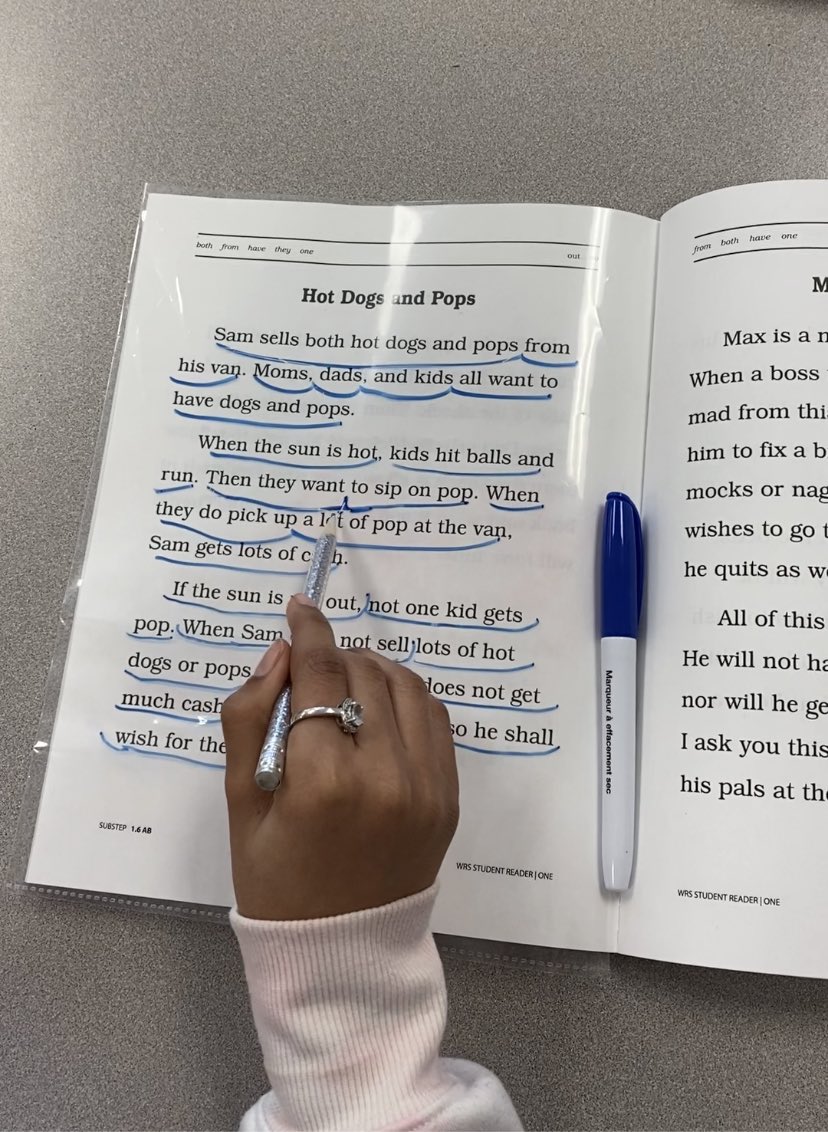 both from have they one
out
Hot Dogs and Pops
Sam sells both hot dogs and pops from
his van. Moms, dads, and kids all want to
have dogs and pops.
When the sun is hot, kids hit balls and
run. Then they want to sip on pop. When
they do pick up a lot of pop at the van,
Sam gets lots of
If the sun is out, not one kid gets
pop. When Sam not sell lots of hot
dogs or pops does not get
much cash
wish for the so he shall
SUBSTEP 1.6 AB
WRS STUDENT READER | ONE
from both have one
Max is a
When a boss
mad from
him to fix a
mocks or
wishes to go
he quits as
All of this
He will not
nor will he
I ask you this
his pals at
WRS STUDENT READER | ONE
Marqueur à effacement sec